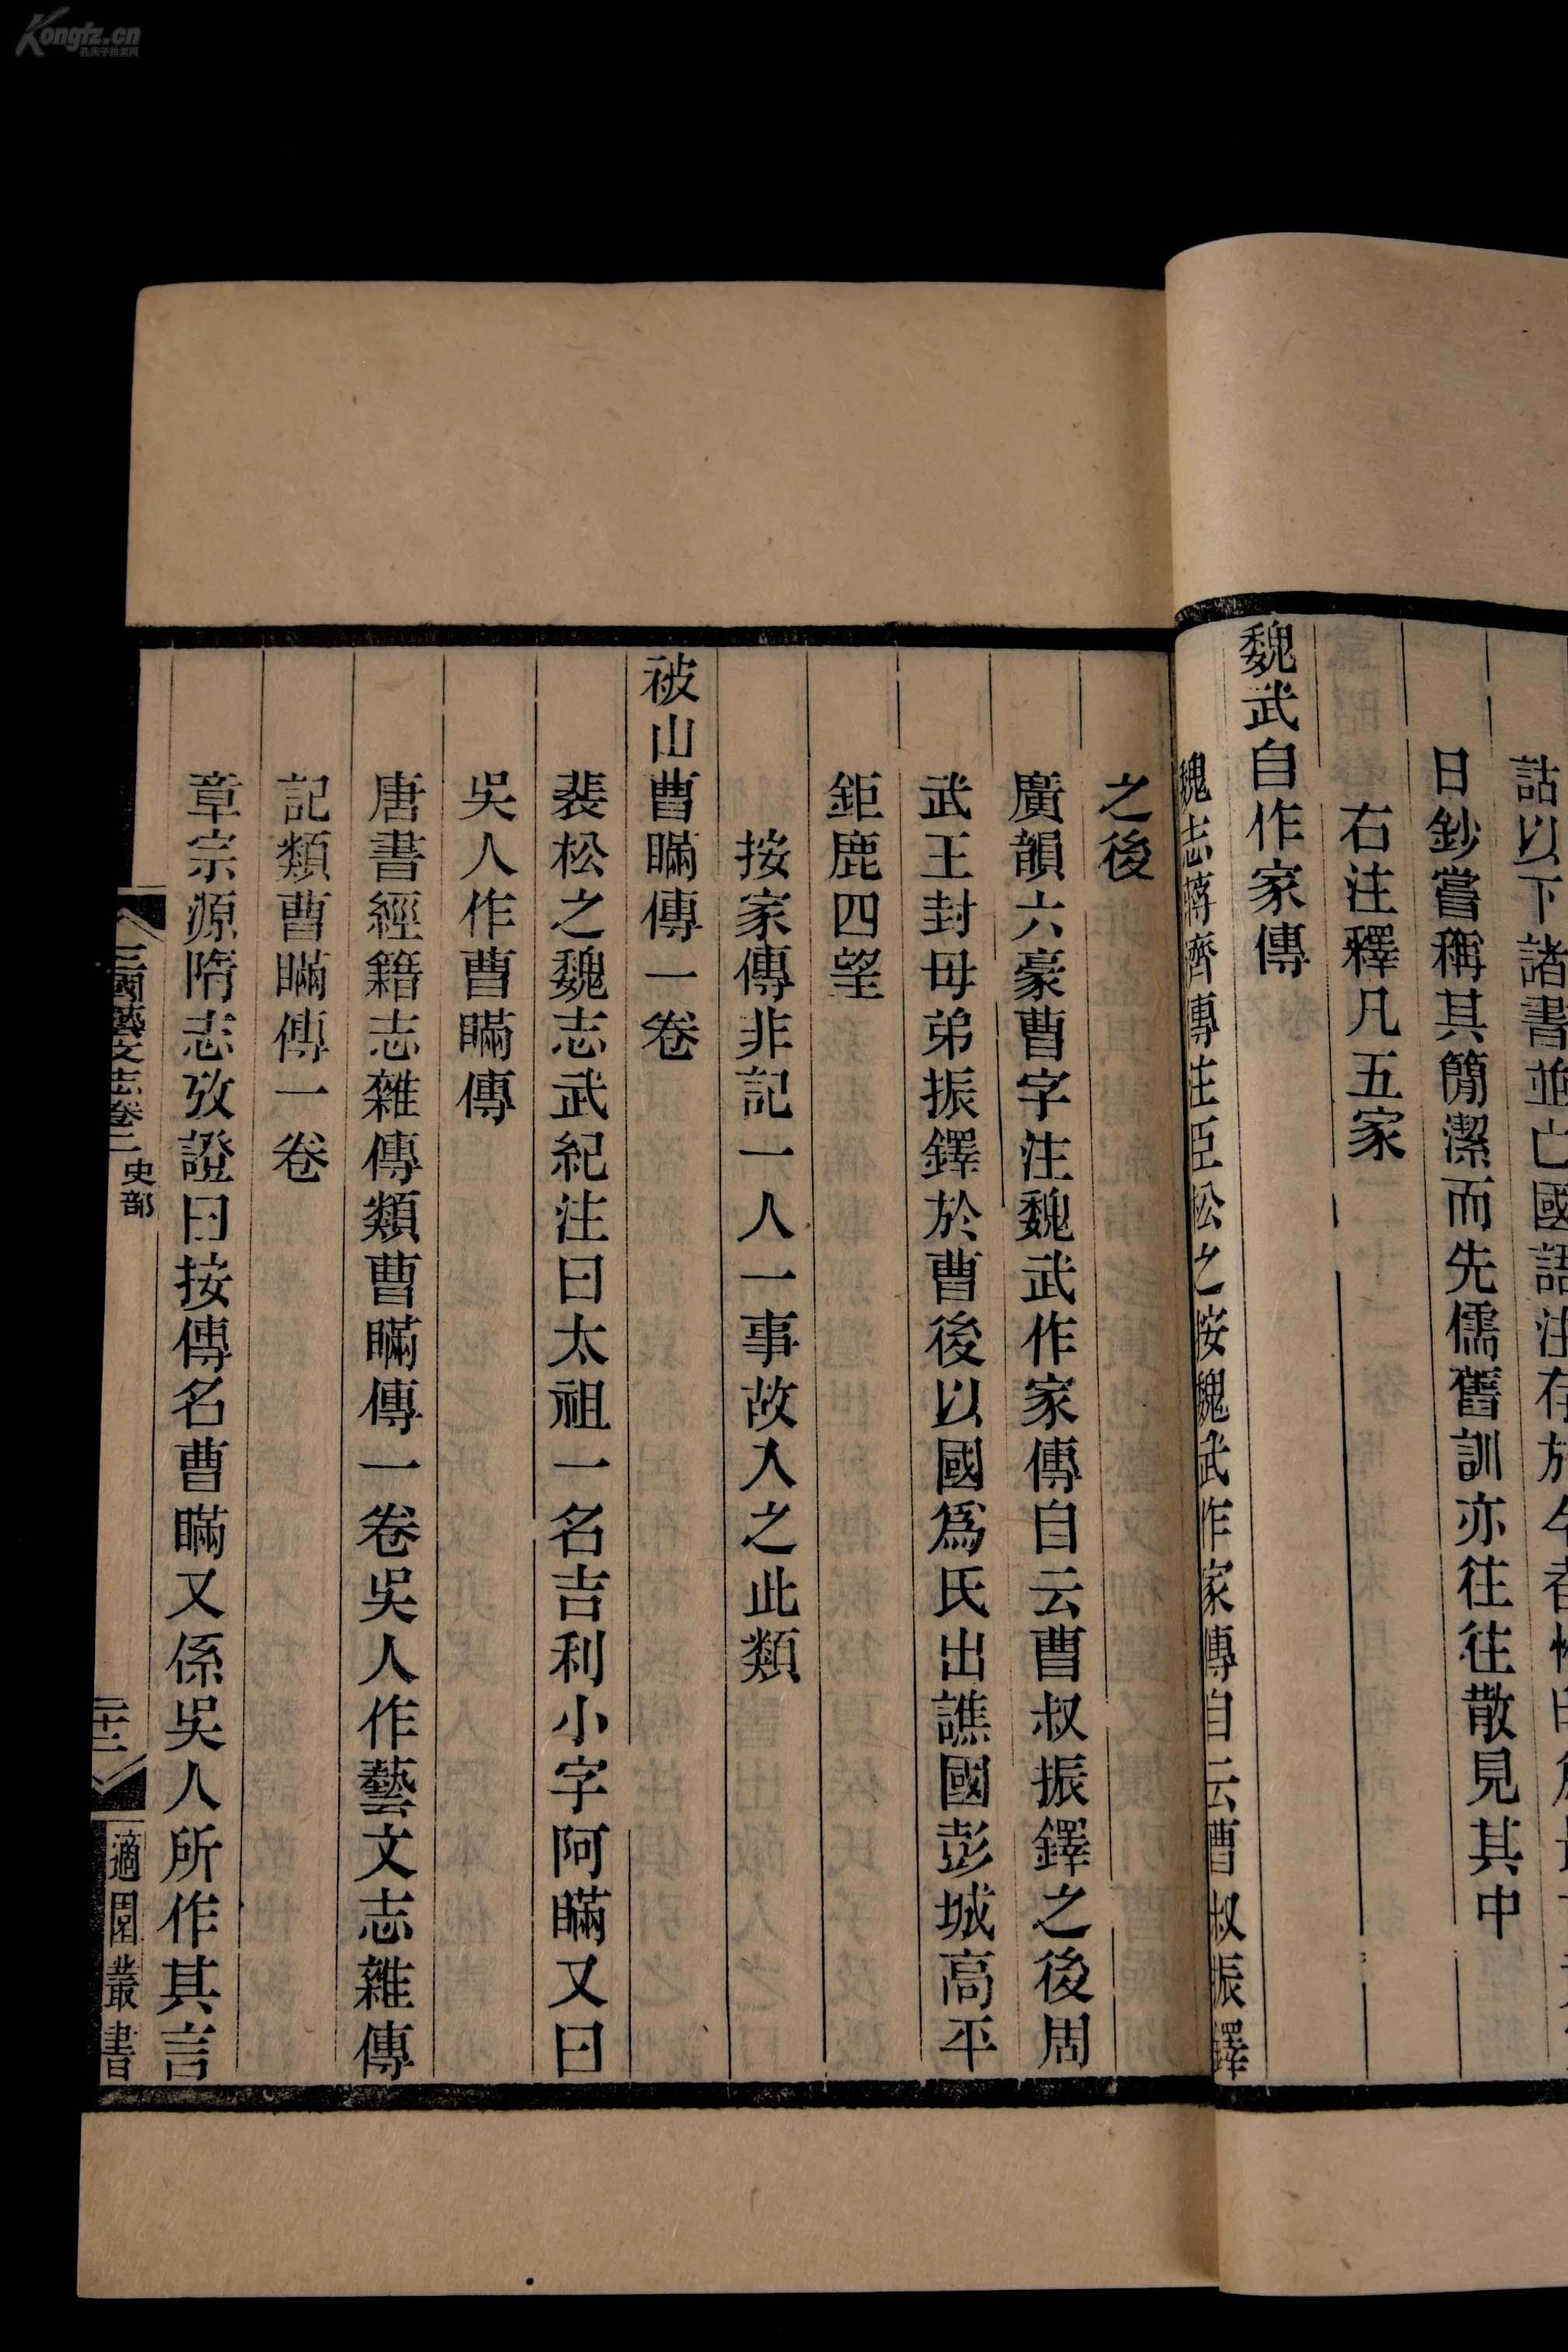 詁以下諸書並亡國語注存於今者
日鈔嘗稱其簡潔而先儒舊訓亦往往散見其中
右注釋凡五家
魏武自作家傳
魏志蔣濟傳注臣松之按魏武作家傳自云曹叔振鐸
之後
廣韻六豪曹字注魏武作家傳自云曹叔振鐸之後周
武王封母弟振鐸於曹後以國爲氏出譙國彭城高平
鉅鹿四望
按家傳非記一人一事故入之此類
被山曹瞞傳一卷
裴松之魏志武紀注曰太祖一名吉利小字阿瞞又曰
吳人作曹瞞傳
唐書經籍志雜傳類曹瞞傳一卷吳人作藝文志雜傳
記類曹瞞傳一卷
章宗源隋志攷證曰按傳名曹瞞又係吳人所作其言
三國藝文志卷二 史部
適園叢書
Kongfz.cn
孔夫子旧书网